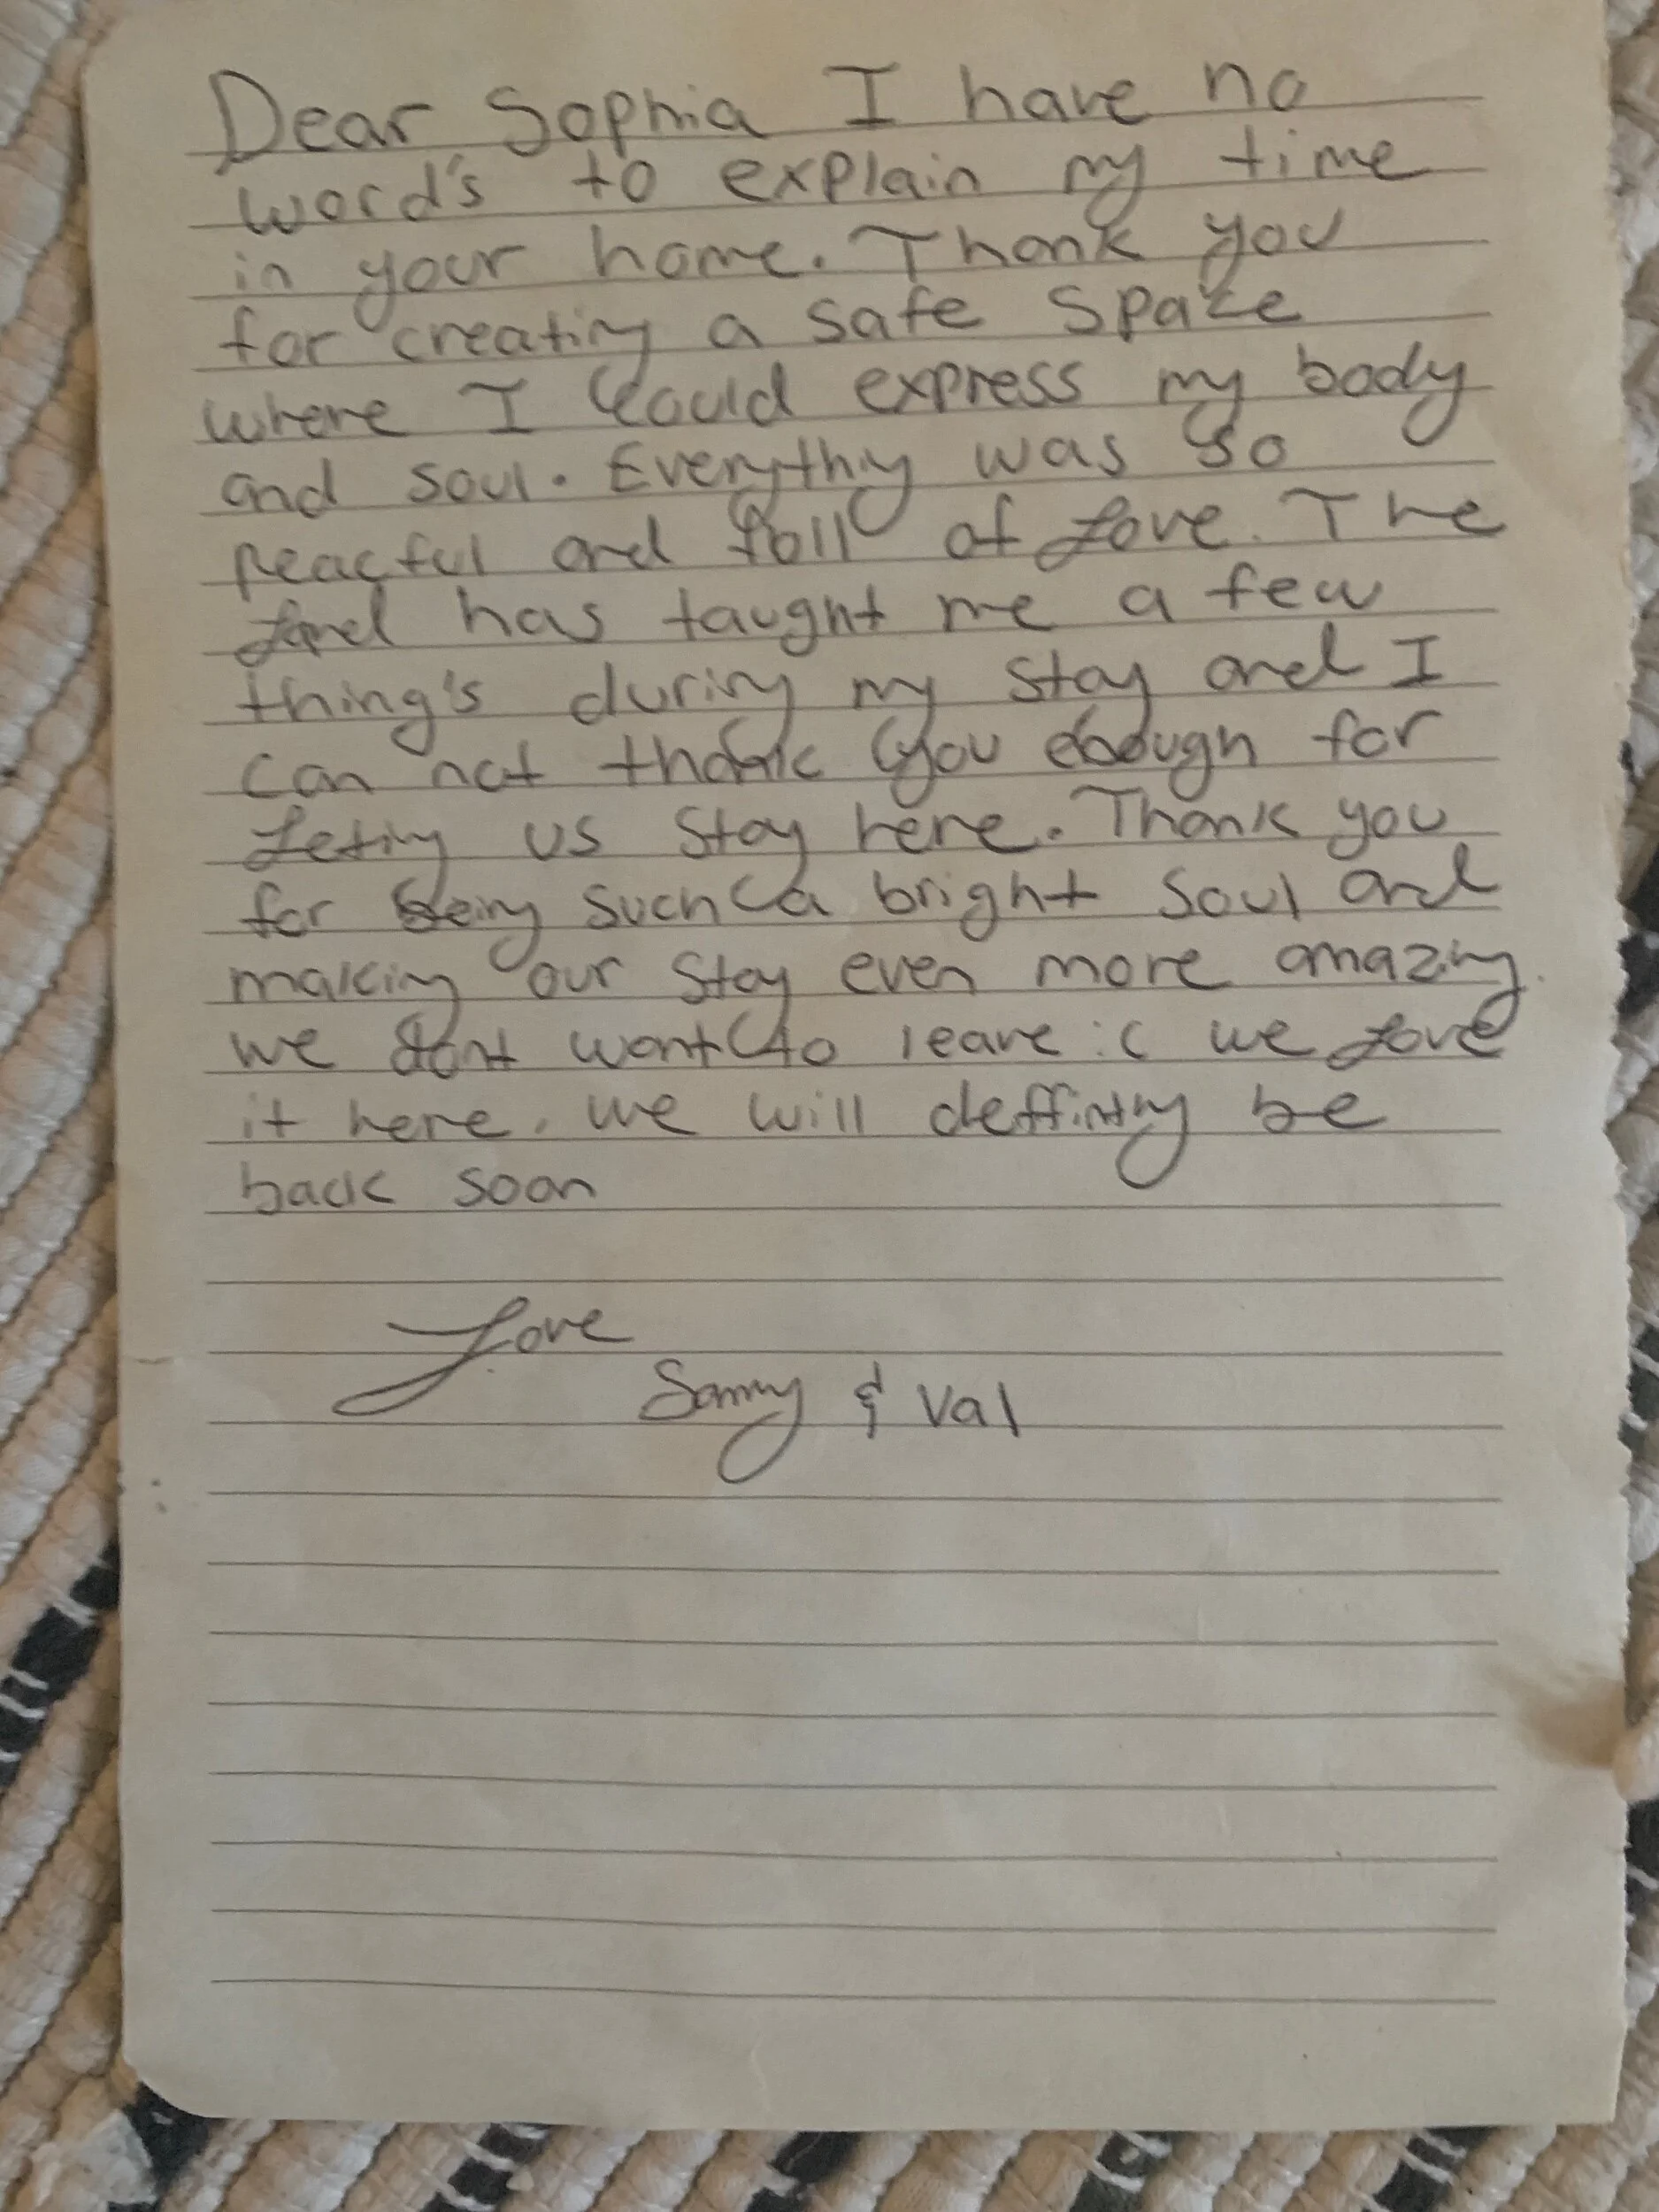 Dear Sophia I have no
word's to explain my time
in your home. Thank you
for creating a safe space
where I could express my body
and soul. Everything was so
peacful and full of Love. The
Land has taught me a few
thing's during my stay and I
can not thank you enough for
Leting us stay here. Thank you
for being such a bright soul and
making our stay even more amazing.
we dont want to leave :( we Love
it here. we will deffintly be
back soon
Love
Sammy & Val